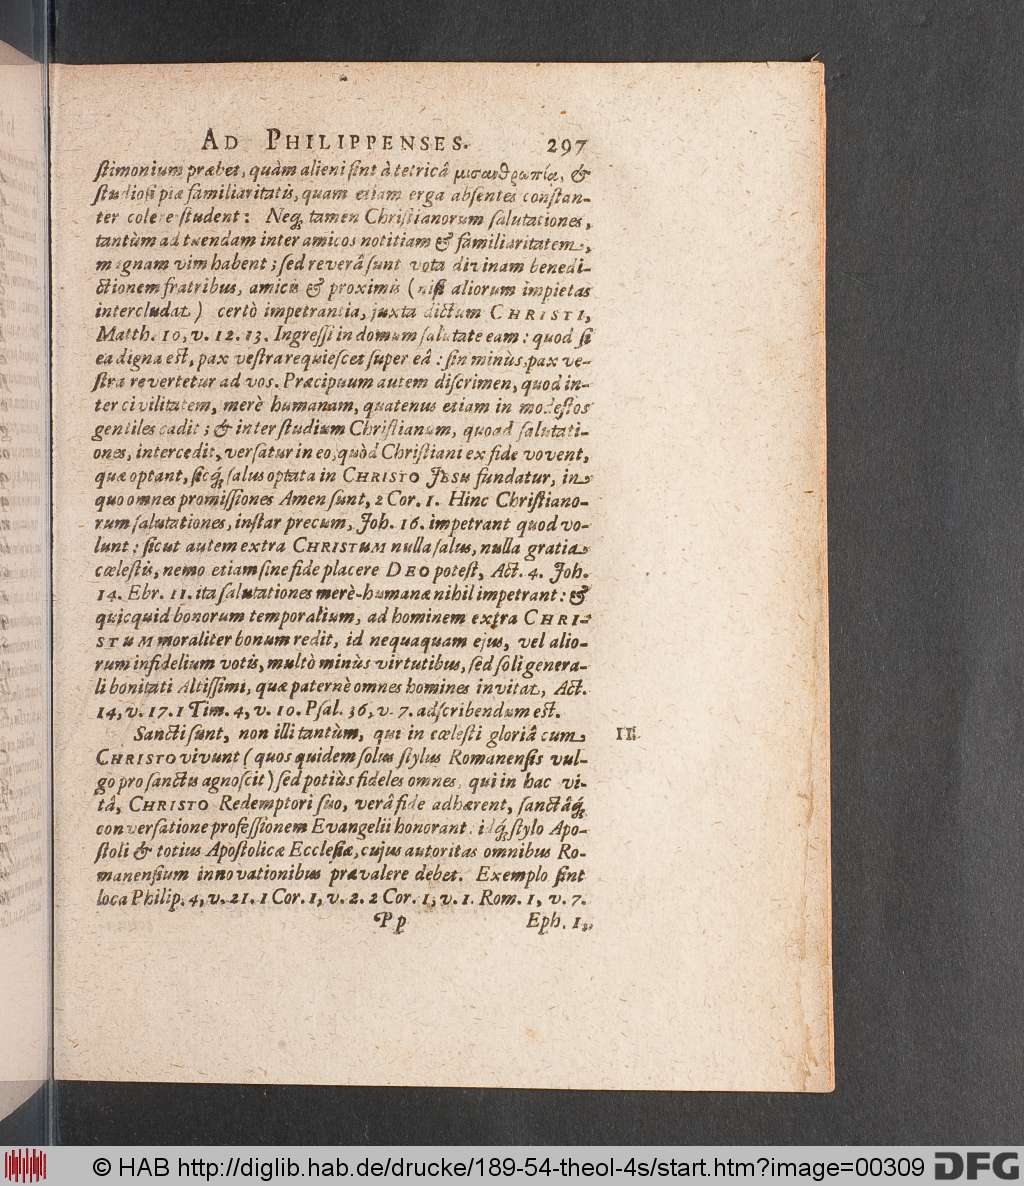 AD PHILIPPENSES. 297
stimonium præbet, quàm alieni sint à tetricâ μισανθρωπία, &
studiosi piæ familiaritatis, quam etiam erga absentes constan-
ter colere student: Neq; tamen Christianorum salutationes,
tantùm ad tuendam inter amicos notitiam & familiaritatem,
magnam vim habent; sed reverâ sunt vota divinam benedi-
ctionem fratribus, amicis & proximis (nisi aliorum impietas
intercludat) certò impetrantia, juxta dictum CHRISTI,
Matth. 10, v. 12. 13. Ingressi in domum salutate eam: quod si
ea digna est, pax vestra requiescet super eâ: sin minùs, pax ve-
stra revertetur ad vos. Præcipuum autem discrimen, quod in-
ter civilitatem, merè humanam, quatenus etiam in modestos
gentiles cadit; & inter studium Christianum, quoad salutati-
ones, intercedit, versatur in eo, quòd Christiani ex fide vovent,
quæ optant, sicq; salus optata in CHRISTO JESU fundatur, in
quo omnes promissiones Amen sunt, 2 Cor. 1. Hinc Christiano-
rum salutationes, instar precum, Joh. 16. impetrant quod vo-
lunt: sicut autem extra CHRISTUM nulla salus, nulla gratia
cœlestis, nemo etiam sine fide placere DEO potest, Act. 4. Joh.
14. Ebr. 11. ita salutationes merè-humanæ nihil impetrant: &
quicquid bonorum temporalium, ad hominem extra CHRI-
STUM moraliter bonum redit, id nequaquam ejus, vel alio-
rum infidelium votis, multò minùs virtutibus, sed soli genera-
li bonitati Altissimi, quæ paternè omnes homines invitat, Act.
14, v. 17. 1 Tim. 4, v. 10. Psal. 36, v. 7. adscribendum est.
Sancti sunt, non illi tantùm, qui in cœlesti gloriâ cum III.
CHRISTO vivunt (quos quidem solus stylus Romanensis vul-
go pro sanctis agnoscit) sed potiùs fideles omnes, qui in hac vi-
tâ, CHRISTO Redemptori suo, verâ fide adhærent, sanctâq;
conversatione professionem Evangelii honorant. idq; stylo Apo-
stoli & totius Apostolicæ Ecclesiæ, cujus autoritas omnibus Ro-
manensium innovationibus prævalere debet. Exemplo sint
loca Philip. 4, v. 21. 1 Cor. 1, v. 2. 2 Cor. 1, v. 1. Rom. 1, v. 7.
Pp Eph. 1,
© HAB http://diglib.hab.de/drucke/189-54-theol-4s/start.htm?image=00309 DFG